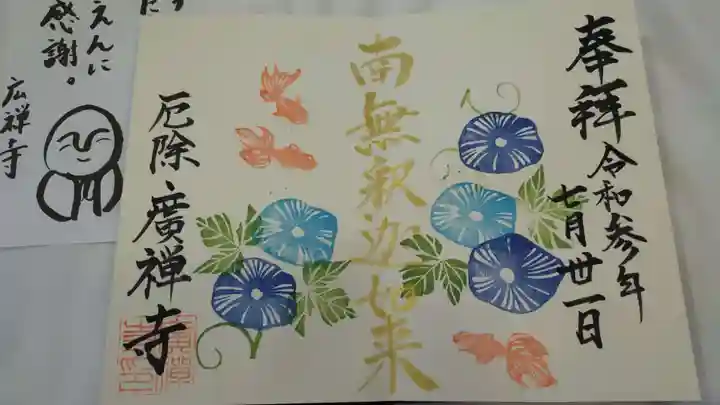 奉拝
令和参年
七月卅一日
南無釈迦如来
厄除
廣禅寺
えんに
感謝。
広禅寺